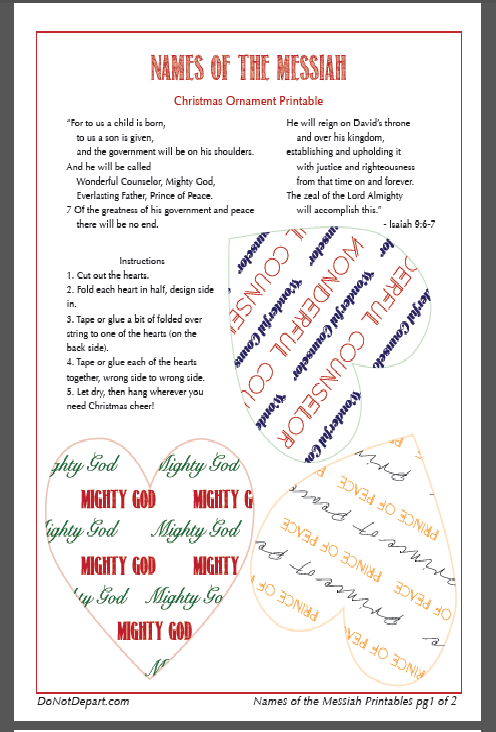 NAMES OF THE MESSIAH
Christmas Ornament Printable
"For to us a child is born,
to us a son is given,
and the government will be on his shoulders.
And he will be called
Wonderful Counselor, Mighty God,
Everlasting Father, Prince of Peace.
7 Of the greatness of his government and peace
there will be no end.
He will reign on David's throne
and over his kingdom,
establishing and upholding it
with justice and righteousness
from that time on and forever.
The zeal of the Lord Almighty
will accomplish this."
- Isaiah 9:6-7
Instructions
1. Cut out the hearts.
2. Fold each heart in half, design side
in.
3. Tape or glue a bit of folded over
string to one of the hearts (on the
back side).
4. Tape or glue each of the hearts
together, wrong side to wrong side.
5. Let dry, then hang wherever you
need Christmas cheer!
COUNSE
Wonderful Couns
COUNSELOR
WONDERFUL
Wonderful Counselor
WONDERFUL COU
COUNSELOR
Wonderful Cou
DERFUL
ghty God Mighty God
MIGHTY GOD MIGHTY G
ighty God Mighty God
MIGHTY GOD MIGHTY
ty God Mighty Go
MIGHTY GOD
M
prin
PRINCE OF PEACE
prince of peace
PRINCE OF PEACE PRINCE OF
prince of pe
PRINCE OF PEACE
DoNotDepart.com
Names of the Messiah Printables pg1 of 2